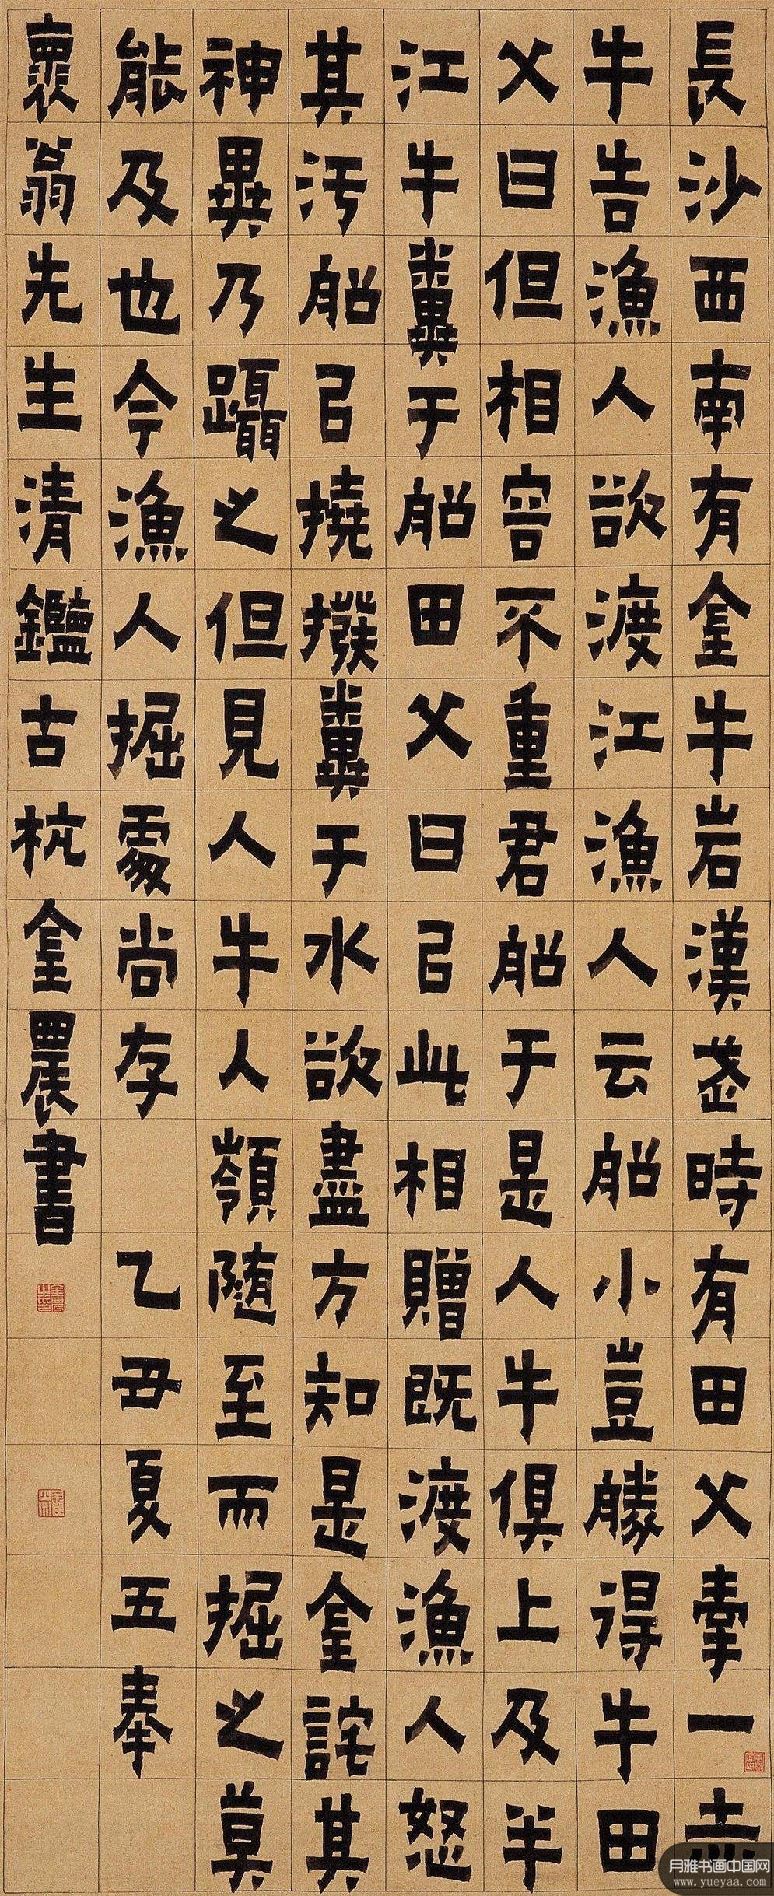 長沙西南有金牛岩漢武時有田父牽一赤
牛告漁人欲渡江漁人云船小豈勝得牛田
父曰但相容不重君船于是人牛俱上及半
江牛糞于船田父曰以此相贈既渡漁人怒
其汚船以撓撥糞于水欲盡方知是金詫其
神異乃躡之但見人牛人嶺随至而掘之莫
能及也今漁人掘處尚存 乙丑夏五奉
褱翁先生清鑑古杭金農書
月雅书画中国网
www.yueyaa.com